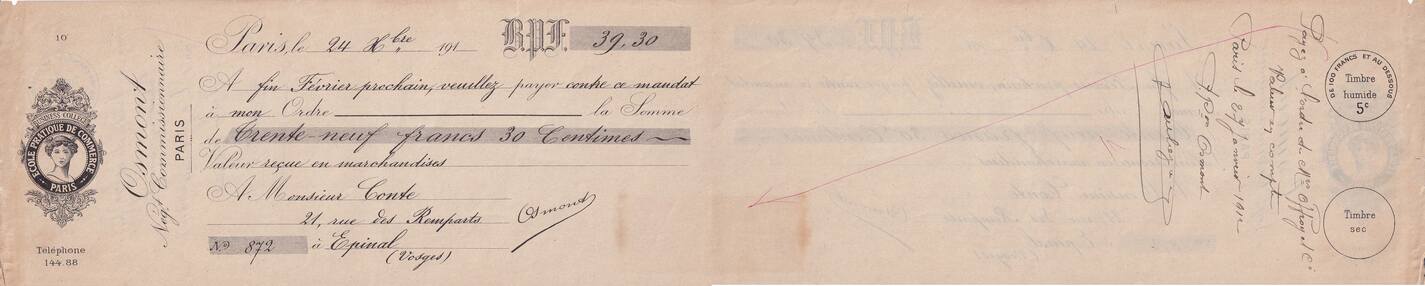 10
BUSINESS COLLEGE
ECOLE PRATIQUE DE COMMERCE
PARIS
Téléphone
144.88
Osmont
Négt. Commissionnaire
PARIS
Paris, le 24 Xbre 191
B.P.F. 39,30
A fin Février prochain, veuillez payer contre ce mandat
à mon Ordre la Somme
de Trente-neuf francs 30 Centimes
Valeur reçue en marchandises
A Monsieur Conte
21, rue des Remparts
Osmont
No 872 à Epinal
(Vosges)
Payez à l'ordre de Mrs Offroy et Cie
Valeur en compte
Paris le 27 Janvier 1912
Osmont
DE 100 FRANCS ET AU DESSOUS
Timbre
humide
5c
Timbre
sec